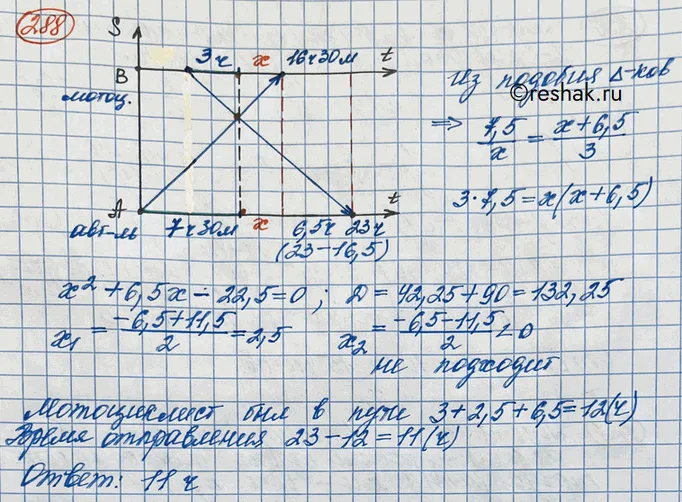 288
S
3ч x 16ч30м t
B
мотоц.
Из подобия Δ-ков
©reshak.ru
=> 7,5/x = x+6,5/3
3·7,5=x(x+6,5)
A t
авт-ль 7ч30м x 6,5ч 23ч
(23-16,5)
x²+6,5x-22,5=0; D=42,25+90=132,25
x₁ = -6,5+11,5/2 =2,5 x₂ = -6,5-11,5/2 <0
не подходит
Мотоциклист был в пути 3+2,5+6,5=12(ч)
Время отправления 23-12=11(ч)
Ответ: 11 ч